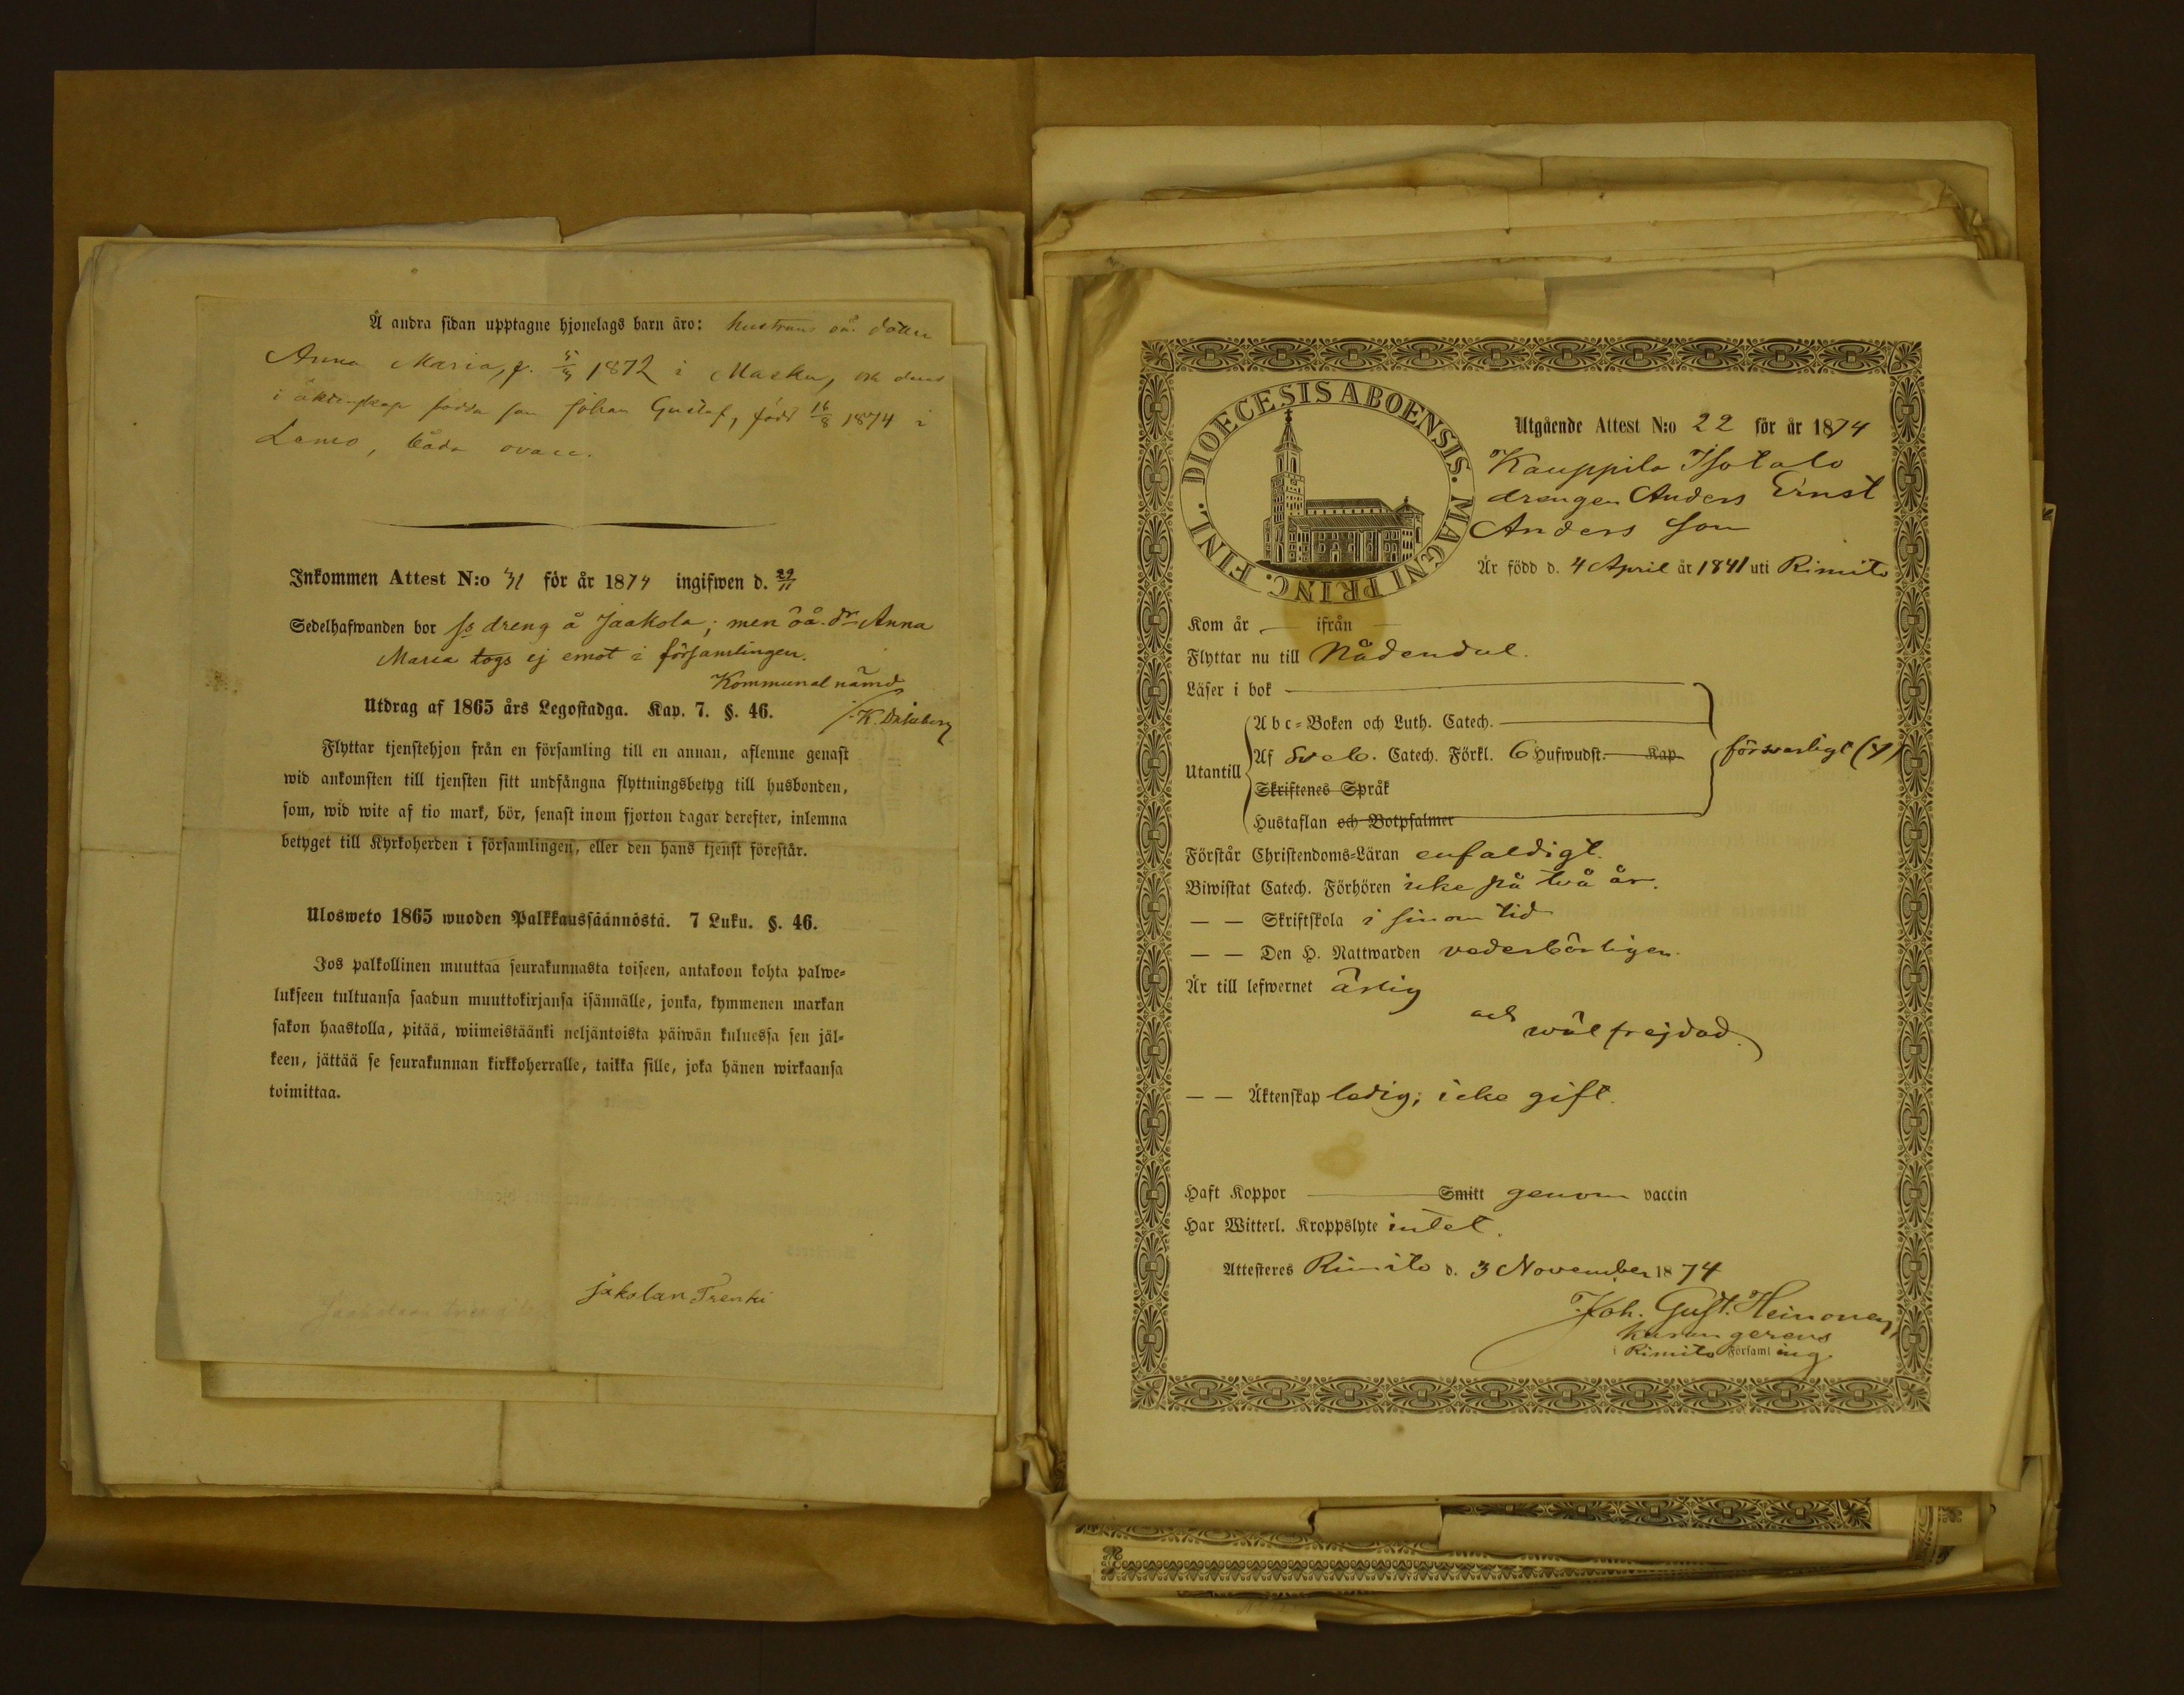 Å andra sidan upptagne hjonelags barn äro: hustruns oä. dotter
Anna Maria, f. 1872 i Masku, och deras
i äktenskap födda son Johan Gustaf, född 16/8 1874 i
Lemo, båda ovacc.
Inkommen Attest N:o 31 för år 1874 ingifwen d. 29/11
Sedelhafwanden bor ss dreng å Jaakola; men oä. dr Anna
Maria togs ej emot i församlingen.
Kommunal nämd
Utdrag af 1865 års Legostadga. Kap. 7. §. 46.
Flyttar tjenstehjon från en församling till en annan, aflemne genast
wid ankomsten till tjensten sitt undfångna flyttningsbetyg till husbonden,
som, wid wite af tio mark, bör, senast inom fjorton dagar derefter, inlemna
betyget till Kyrkoherden i församlingen, eller den hans tjenst förestår.
Ulosweto 1865 wuoden Palkkaussäännöstä. 7 Luku. §. 46.
Jos palkollinen muuttaa seurakunnasta toiseen, antakoon kohta palwe=
lukseen tultuansa saadun muuttokirjansa isännälle, jonka, kymmenen markan
sakon haastolla, pitää, wiimeistäänki neljäntoista päiwän kuluessa sen jäl=
keen, jättää se seurakunnan kirkkoherralle, taikka sille, joka hänen wirkaansa
toimittaa.
Jakolan Trenki
DIOECESIS ABOENSIS. MAGNI PRINC. FINL.
Utgående Attest N:o 22 för år 1874
Kauppila Isotalo
drengen Anders Ernst
Anders son
Är född d. 4 April år 1841 uti Rimito
Kom år — ifrån —
Flyttar nu till Nådendal.
Läser i bok
Abc=Boken och Luth. Catech.
Utantill
Af Sveb. Catech. Förkl. 6 Hufwudst. Kap. försvarligt (y)
Skriftenes Språk
Hustaflan och Botpsalmer
Förstår Christendoms=Läran enfaldigt.
Biwistat Catech. Förhören icke på två år.
— — Skriftskola i sinom tid
— — Den H. Nattwarden vederbörligen.
Är till lefwernet ärlig
och
wälfrejdad.
— — Äktenskap ledig; icke gift.
Haft Koppor — Smitt genom vaccin
Har Witterl. Kroppslyte intet.
Attesteres Rimito d. 3 November 1874
Joh. Gust. Heinonen,
kuram gerens
i Rimito Församling.